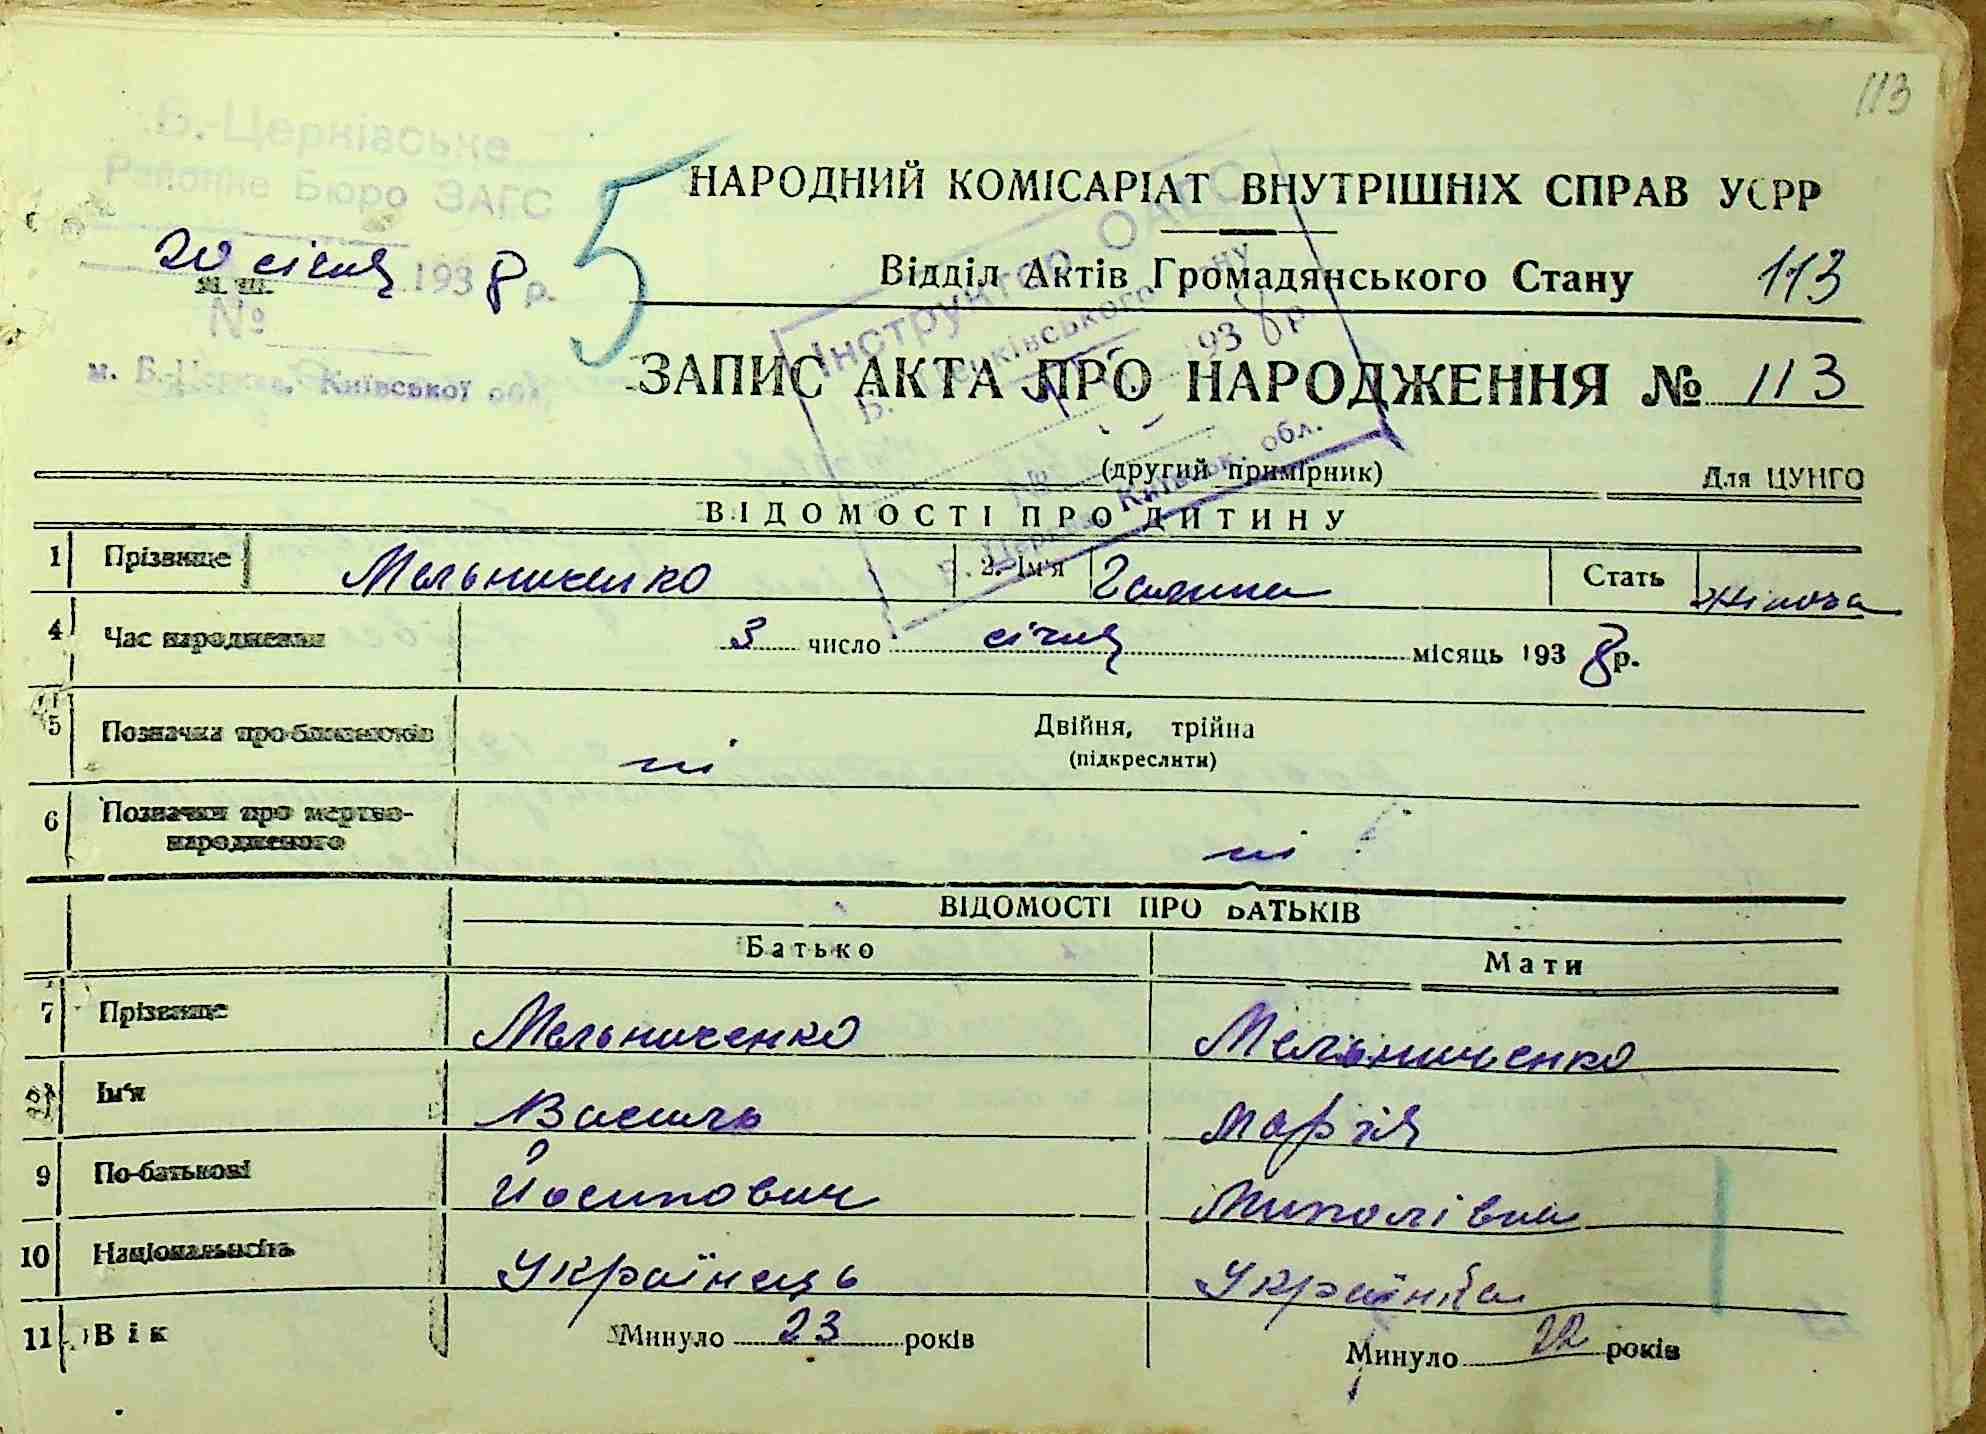 113
Б.-Церківське
Районне Бюро ЗАГС
20 січня 1938 р.
№
м. Б.-Церква, Київської обл.
5
НАРОДНИЙ КОМІСАРІАТ ВНУТРІШНІХ СПРАВ УСРР
Відділ Актів Громадянського Стану 113
ЗАПИС АКТА ПРО НАРОДЖЕННЯ № 113
(другий примірник) Для ЦУНГО
Інструктор ОАГС
Б. Церківського
1938 р.
№
Б. Церква Київськ. обл.
ВІДОМОСТІ ПРО ДИТИНУ
1 Прізвище Мельниченко 2. Ім'я Галина Стать жіноча
4 Час народження 3 число січня місяць 1938 р.
5 Позначка про близнюків ні Двійня, трійна
(підкреслити)
6 Позначки про мертво-
народженого ні
ВІДОМОСТІ ПРО БАТЬКІВ
Батько Мати
7 Прізвище Мельниченко Мельниченко
8 Ім'я Василь Марія
9 По-батькові Йосипович Миколівна
10 Національність Українець Українка
11 Вік Минуло 23 років Минуло 22 років